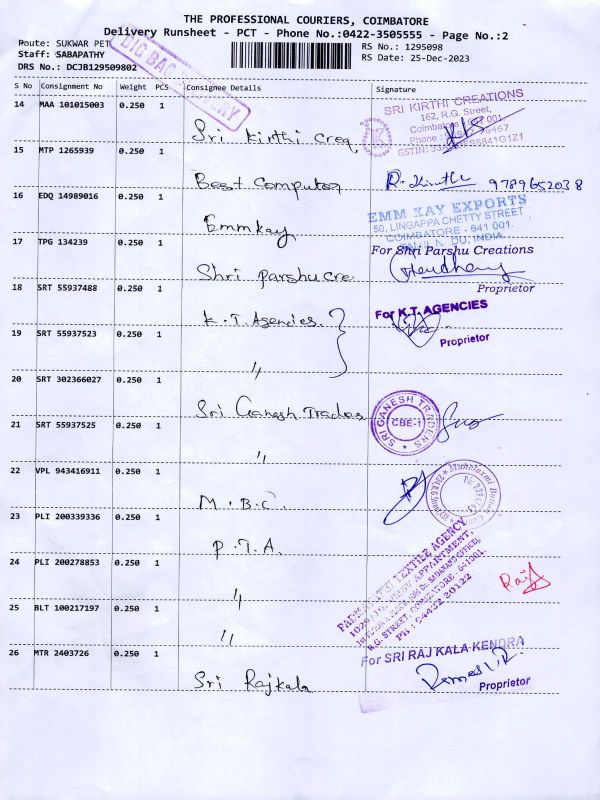 THE PROFESSIONAL COURIERS, COIMBATORE
Delivery Runsheet - PCT - Phone No.:0422-3505555 - Page No.:2
Route: SUKWAR PET
RS No.: 1295098
Staff: SABAPATHY
RS Date: 25-Dec-2023
DRS No.: DCJB129509802
S No Consignment No Weight PCS Consignee Details Signature
14 MAA 101015003 0.250 1
SRI KIRTHI CREATIONS
162, R.G. Street,
Sri Kirthi Crea
15 MTP 1265939 0.250 1
Best Computer R. Kirthi 9789652038
16 EDQ 14989016 0.250 1
EMM KAY EXPORTS
50, LINGAPPA CHETTY STREET
COIMBATORE - 641 001.
Emmkay
17 TPG 134239 0.250 1
For Shri Parshu Creations
Shri parshu cre.
18 SRT 55937488 0.250 1
Proprietor
K.T. Agencies.
For K.T. AGENCIES
19 SRT 55937523 0.250 1
Proprietor
"
20 SRT 302366027 0.250 1
Sri Ganesh Trados
SRI GANESH TRADERS
CBE-1
21 SRT 55937525 0.250 1
"
22 VPL 943416911 0.250 1
M.B.C.
23 PLI 200339336 0.250 1
P.T.A.
24 PLI 200278853 0.250 1
"
25 BLT 100217197 0.250 1
"
26 MTR 2403726 0.250 1
For SRI RAJ KALA KENDRA
Sri Rajkala
Proprietor